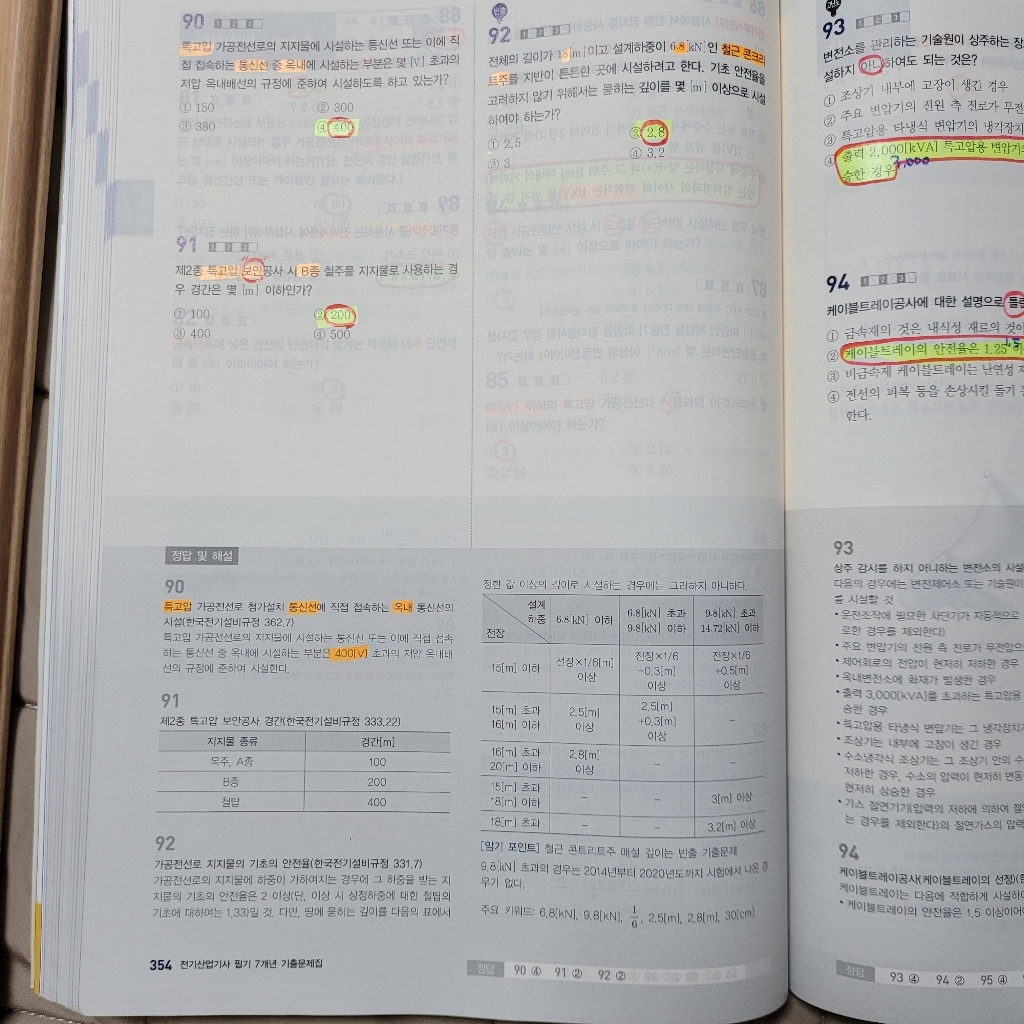 90 1 2 3
특고압 가공전선로의 지지물에 시설하는 통신선 또는 이에 직
접 접속하는 통신선 중 옥내에 시설하는 부분은 몇 [V] 초과의
저압 옥내배선의 규정에 준하여 시설하도록 하고 있는가?
① 150 ② 300
③ 380 ④ 400
91 1 2 3
제2종 특고압 보안공사 시 B종 철주를 지지물로 사용하는 경
우 경간은 몇 [m] 이하인가?
① 100 ② 200
③ 400 ④ 500
빈출
92 1 2 3
전체의 길이가 18[m]이고 설계하중이 6.8[kN]인 철근 콘크리
트주를 지반이 튼튼한 곳에 시설하려고 한다. 기초 안전율을
고려하지 않기 위해서는 묻히는 깊이를 몇 [m] 이상으로 시설
하여야 하는가?
① 2.5 ② 2.8
③ 3 ④ 3.2
정답 및 해설
90
특고압 가공전선로 첨가설치 통신선에 직접 접속하는 옥내 통신선의
시설(한국전기설비규정 362.7)
특고압 가공전선로의 지지물에 시설하는 통신선 또는 이에 직접 접속
하는 통신선 중 옥내에 시설하는 부분은 400[V] 초과의 저압 옥내배
선의 규정에 준하여 시설한다.
91
제2종 특고압 보안공사 경간(한국전기설비규정 333.22)
지지물 종류 경간[m]
목주, A종 100
B종 200
철탑 400
92
가공전선로 지지물의 기초의 안전율(한국전기설비규정 331.7)
가공전선로의 지지물에 하중이 가하여지는 경우에 그 하중을 받는 지
지물의 기초의 안전율은 2 이상(단, 이상 시 상정하중에 대한 철탑의
기초에 대하여는 1.33)일 것. 다만, 땅에 묻히는 깊이를 다음의 표에서
정한 값 이상의 깊이로 시설하는 경우에는 그러하지 아니하다.
설계하중 전장 6.8[kN] 이하 6.8[kN] 초과 9.8[kN] 이하 9.8[kN] 초과 14.72[kN] 이하
15[m] 이하 전장×1/6[m] 이상 전장×1/6 +0.3[m] 이상 전장×1/6 +0.5[m] 이상
15[m] 초과 16[m] 이하 2.5[m] 이상 2.5[m] +0.3[m] 이상 –
16[m] 초과 20[m] 이하 2.8[m] 이상 – –
15[m] 초과 18[m] 이하 – – 3[m] 이상
18[m] 초과 – – 3.2[m] 이상
[암기 포인트] 철근 콘트리트주 매설 깊이는 빈출 기출문제
9.8[kN] 초과의 경우는 2014년부터 2020년도까지 시험에서 나온 경
우가 없다.
주요 키워드: 6.8[kN], 9.8[kN], 1/6, 2.5[m], 2.8[m], 30[cm]
354 전기산업기사 필기 7개년 기출문제집
정답 90 ④ 91 ② 92 ②
93 1 2 3
변전소를 관리하는 기술원이 상주하는 장
설하지 아니하여도 되는 것은?
① 조상기 내부에 고장이 생긴 경우
② 주요 변압기의 전원 측 전로가 무전
③ 특고압용 타냉식 변압기의 냉각장치
④ 출력 2,000[kVA] 특고압용 변압기의
승한 경우 3,000
94 1 2 3
케이블트레이공사에 대한 설명으로 틀린
① 금속재의 것은 내식성 재료의 것이
② 케이블트레이의 안전율은 1.25
③ 비금속제 케이블트레이는 난연성 재
④ 전선의 피복 등을 손상시킬 돌기
한다.
93
상주 감시를 하지 아니하는 변전소의 시설
다음의 경우에는 변전제어소 또는 기술원이
를 시설할 것
• 운전조작에 필요한 차단기가 자동적으로
로한 경우를 제외한다)
• 주요 변압기의 전원 측 전로가 무전압으
• 제어회로의 전압이 현저히 저하한 경우
• 옥내변전소에 화재가 발생한 경우
• 출력 3,000[kVA]를 초과하는 특고압용
승한 경우
• 특고압용 타냉식 변압기는 그 냉각장치가
• 조상기는 내부에 고장이 생긴 경우
• 수소냉각식 조상기는 그 조상기 안의 수
저하한 경우, 수소의 압력이 현저히 변동
현저히 상승한 경우
• 가스 절연기기(압력의 저하에 의하여 절연
는 경우를 제외한다)의 절연가스의 압력
94
케이블트레이공사(케이블트레이의 선정)(한
케이블트레이는 다음에 적합하게 시설하여
• 케이블트레이의 안전율은 1.5 이상이어야
정답 93 ④ 94 ② 95 ④